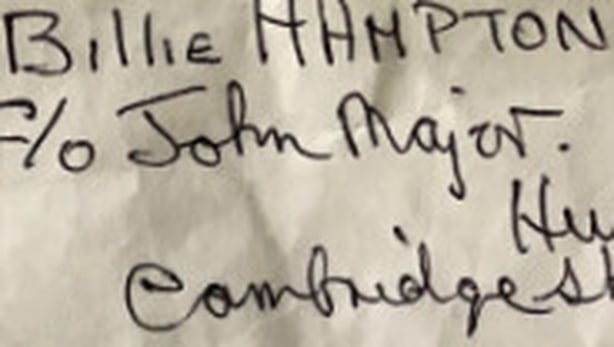 Billie HAMPTON
C/o John Major.
Hu
Cambridgesh